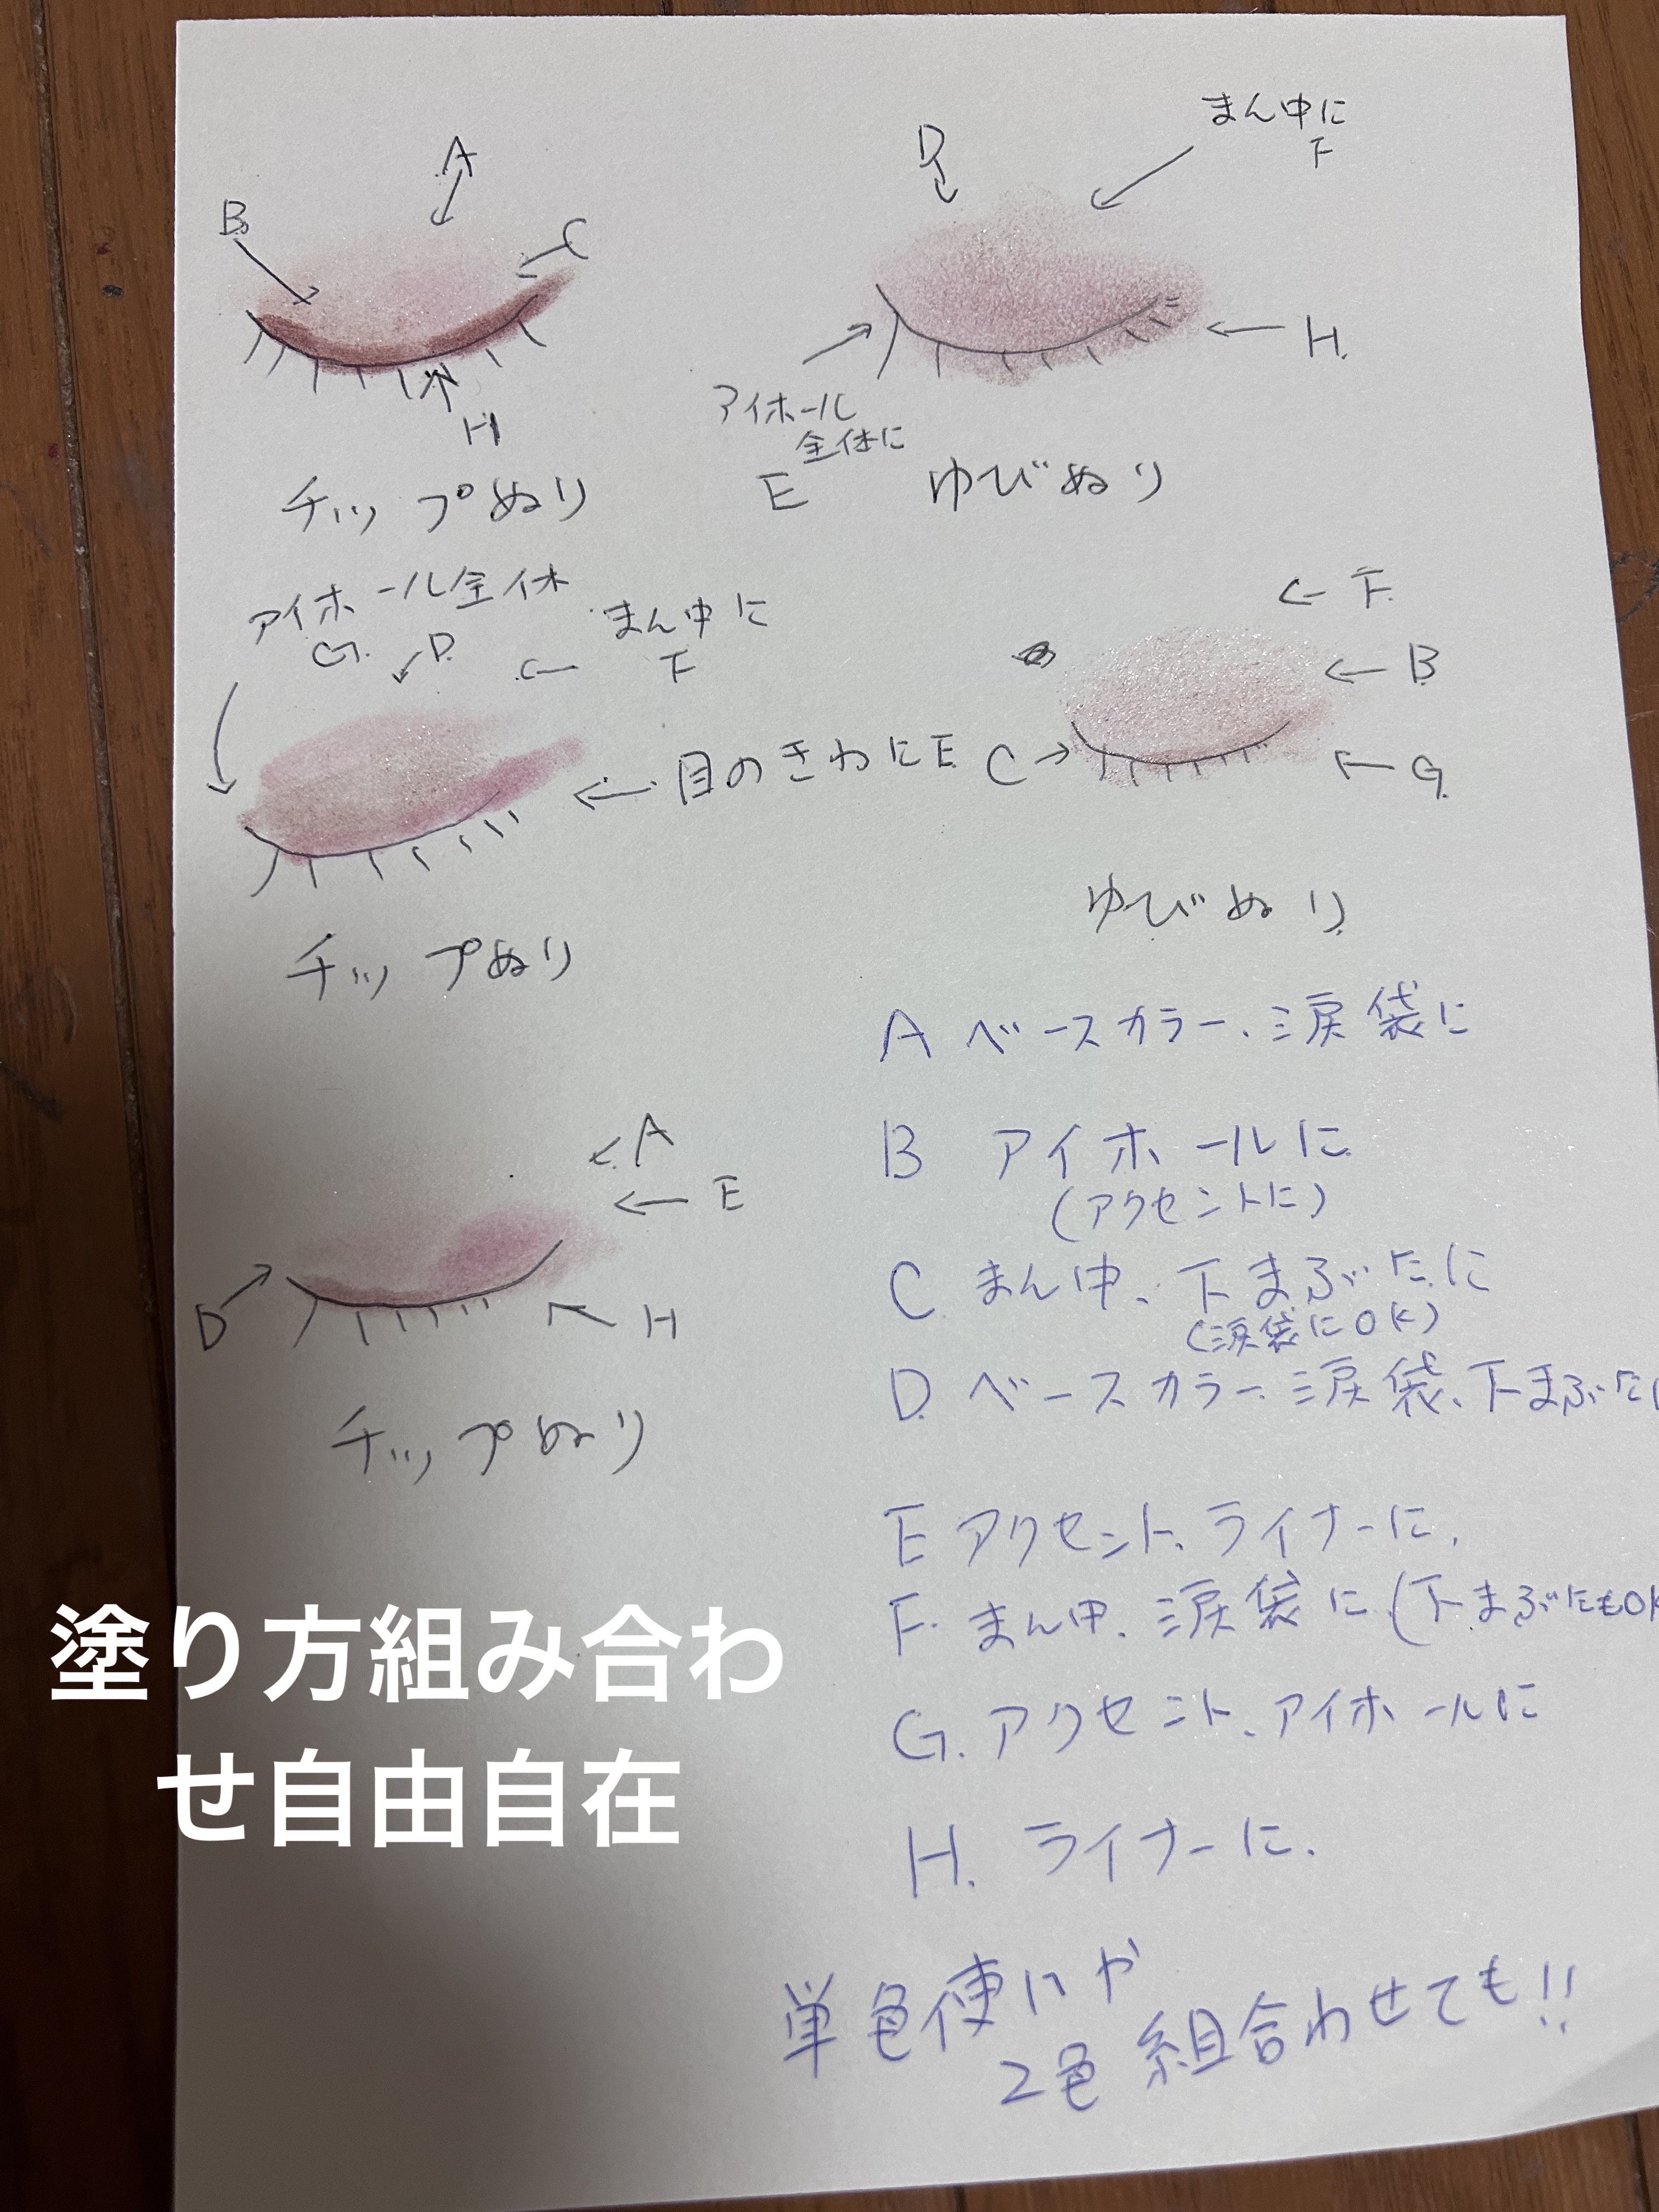 A
B
C
H
チップぬり
D
まん中に
F
H
アイホール
全体に
E
ゆびぬり
アイホール全体
G D
まん中に
F
目のきわにE
チップぬり
F
B
C
G
ゆびぬり
A
E
D
H
チップぬり
A ベースカラー、涙袋に
B アイホールに
(アクセントに)
C まん中、下まぶたに
(涙袋にOK)
D ベースカラー、涙袋、下まぶたに
E アクセント、ライナーに、
F. まん中、涙袋に(下まぶたにもOK
G. アクセント、アイホールに
H. ライナーに、
単色使いや
2色組合わせても!!
塗り方組み合わ
せ自由自在